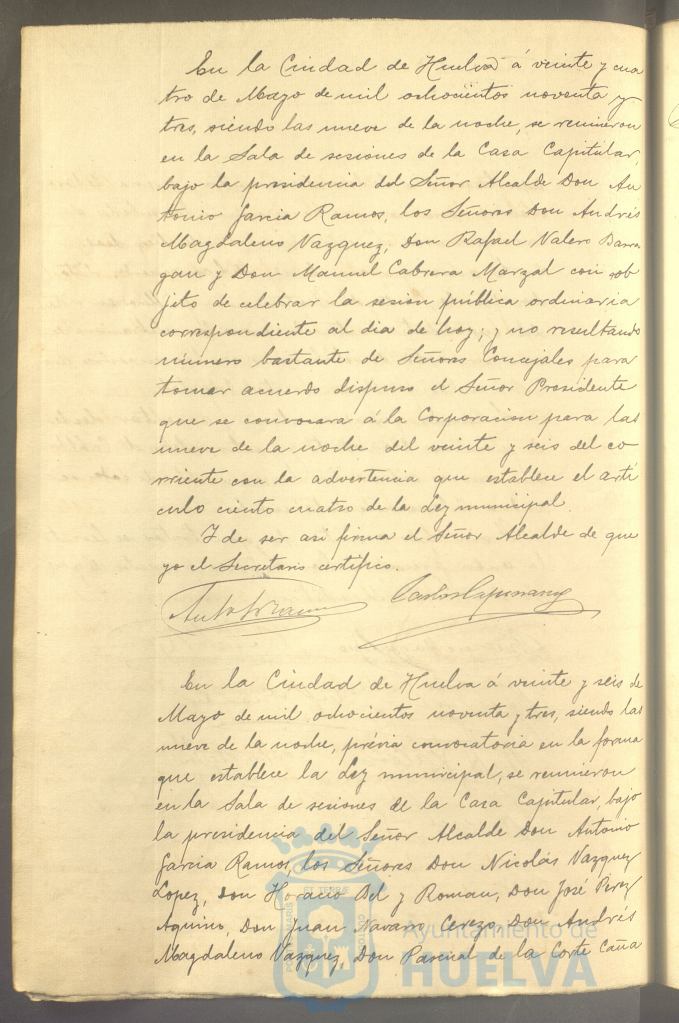 En la Ciudad de Huelva á veinte y cua
tro de Mayo de mil ochocientos noventa y
tres, siendo las nueve de la noche, se reunieron
en la Sala de sesiones de la Casa Capitular,
bajo la presidencia del Señor Alcalde Don An
tonio Garcia Ramos, los Señores Don Andrés
Magdaleno Vazquez, Don Rafael Valero Barra
gan y Don Manuel Cabrera Marzal con ob
jeto de celebrar la sesion pública ordinaria
correspondiente al dia de hoy; y no resultando
número bastante de Señores Concejales para
tomar acuerdo dispuso el Señor Presidente
que se convocara á la Corporacion para las
nueve de la noche del veinte y seis del co
rriente con la advertencia que establece el arti
culo ciento cuatro de la Ley municipal.
Y de ser asi firma el Señor Alcalde de que
yo el Secretario certifico.
En la Ciudad de Huelva á veinte y seis de
Mayo de mil ochocientos noventa y tres, siendo las
nueve de la noche, prévia convocatoria en la forma
que establece la Ley municipal, se reunieron
en la Sala de sesiones de la Casa Capitular, bajo
la presidencia del Señor Alcalde Don Antonio
Garcia Ramos, los Señores Don Nicolás Vazquez
Lopez, Don Horacio Bel y Roman, Don José Perez
Aquino, Don Juan Navarro Cerezo, Don Andrés
Magdaleno Vazquez, Don Pascual de la Corte Caña
Ayuntamiento de
HUELVA